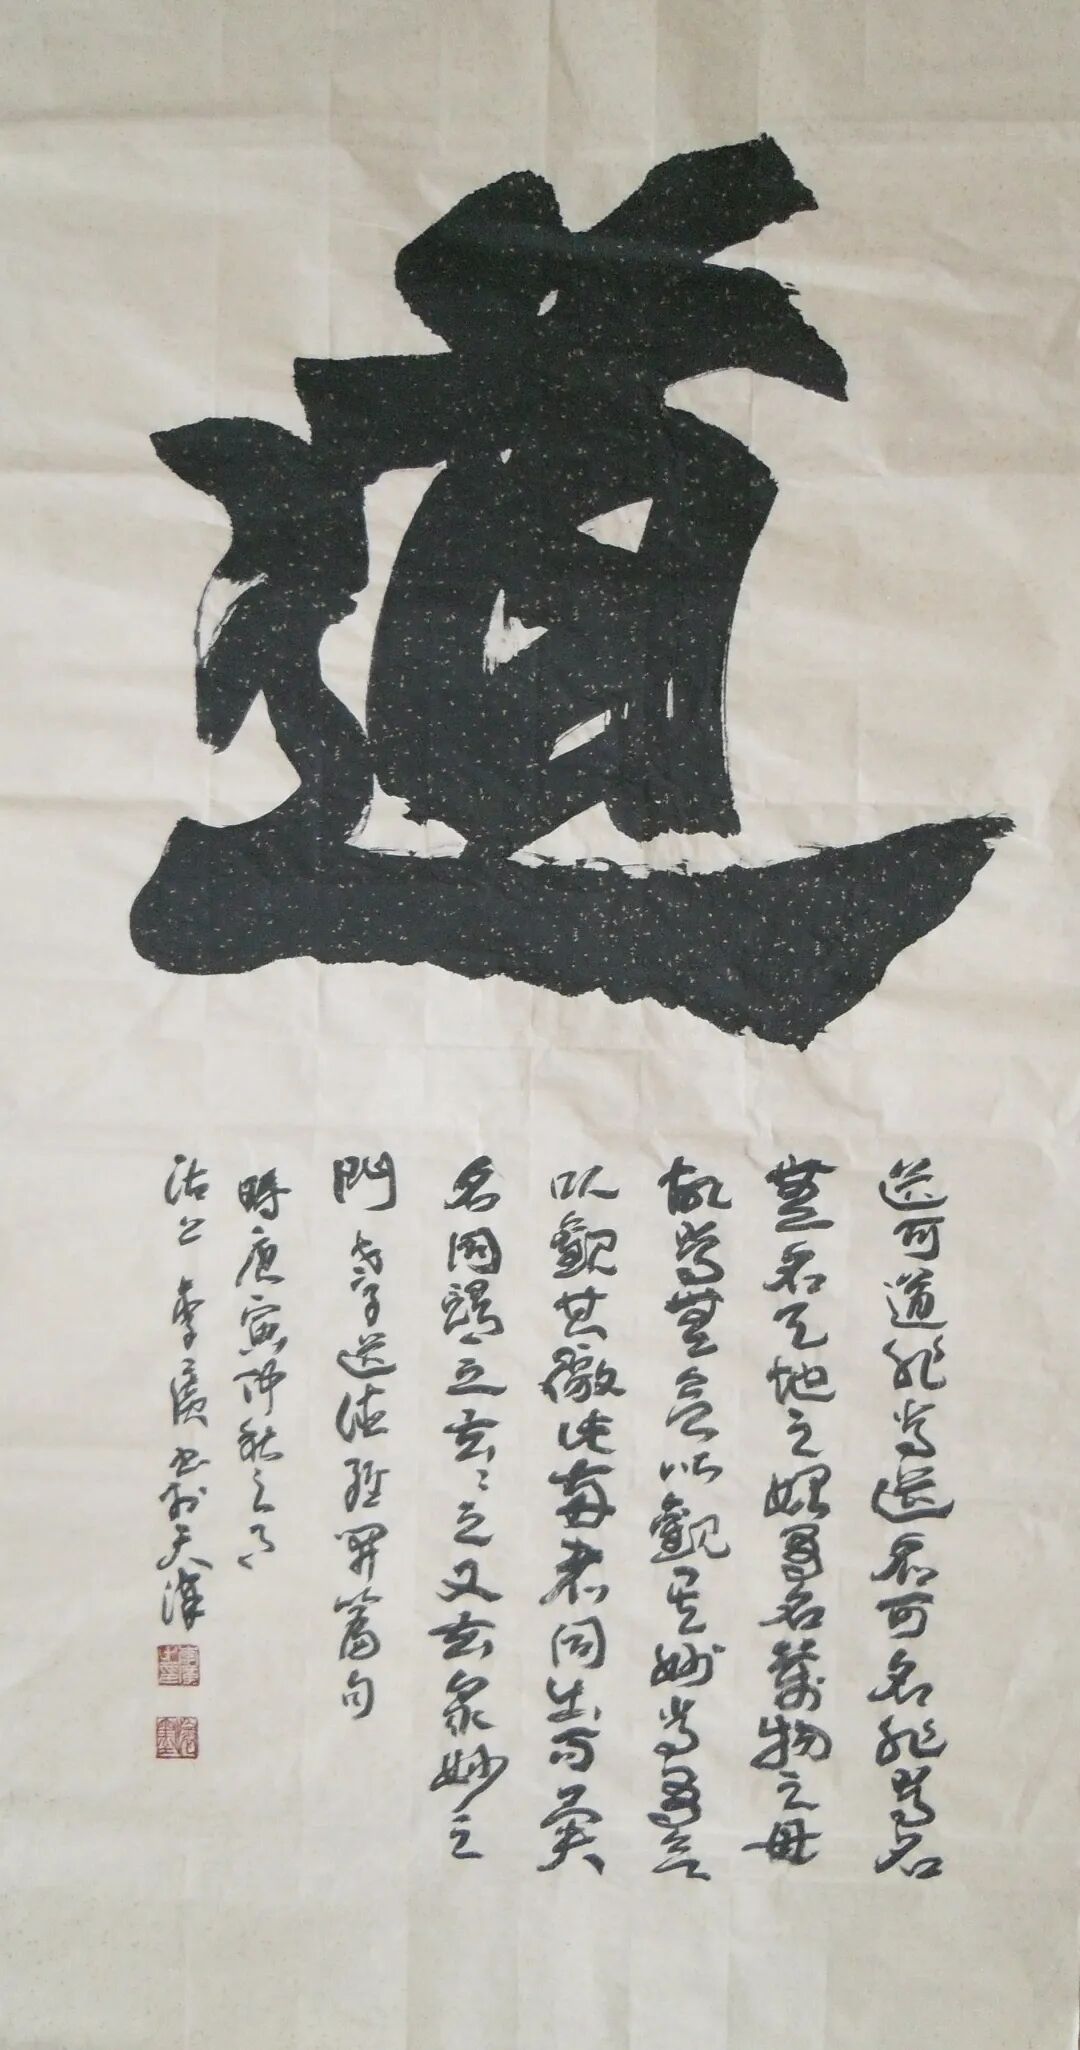 道
道可道非常道名可名非常名
無名天地之始有名萬物之母
故常無欲以觀其妙常有欲
以觀其徼此兩者同出而異
名同謂之玄玄之又玄眾妙之
門老子道德經開篇句
時庚寅仲秋之月
沽上李廣書於天津